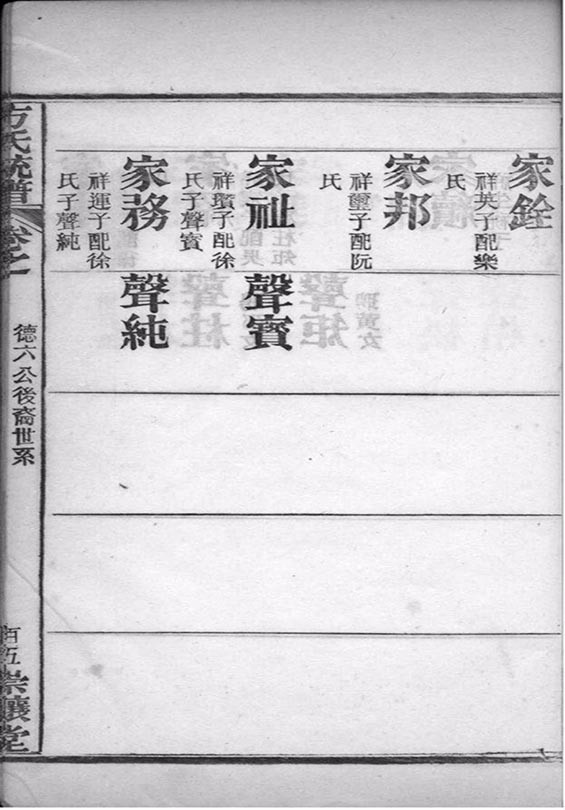 家銓
祥英子配樂
氏
家邦
祥璽子配阮
氏
家祉
祥璸子配徐
氏子聲賓
聲賓
家務
祥運子配徐
氏子聲純
聲純
方氏統譜
卷之一
德六公後裔世系
百五
崇讓堂